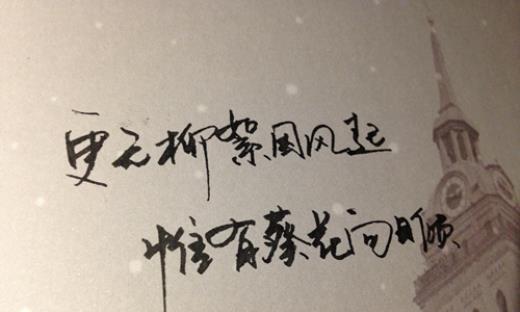 更无柳絮因风起
惟有葵花向日倾